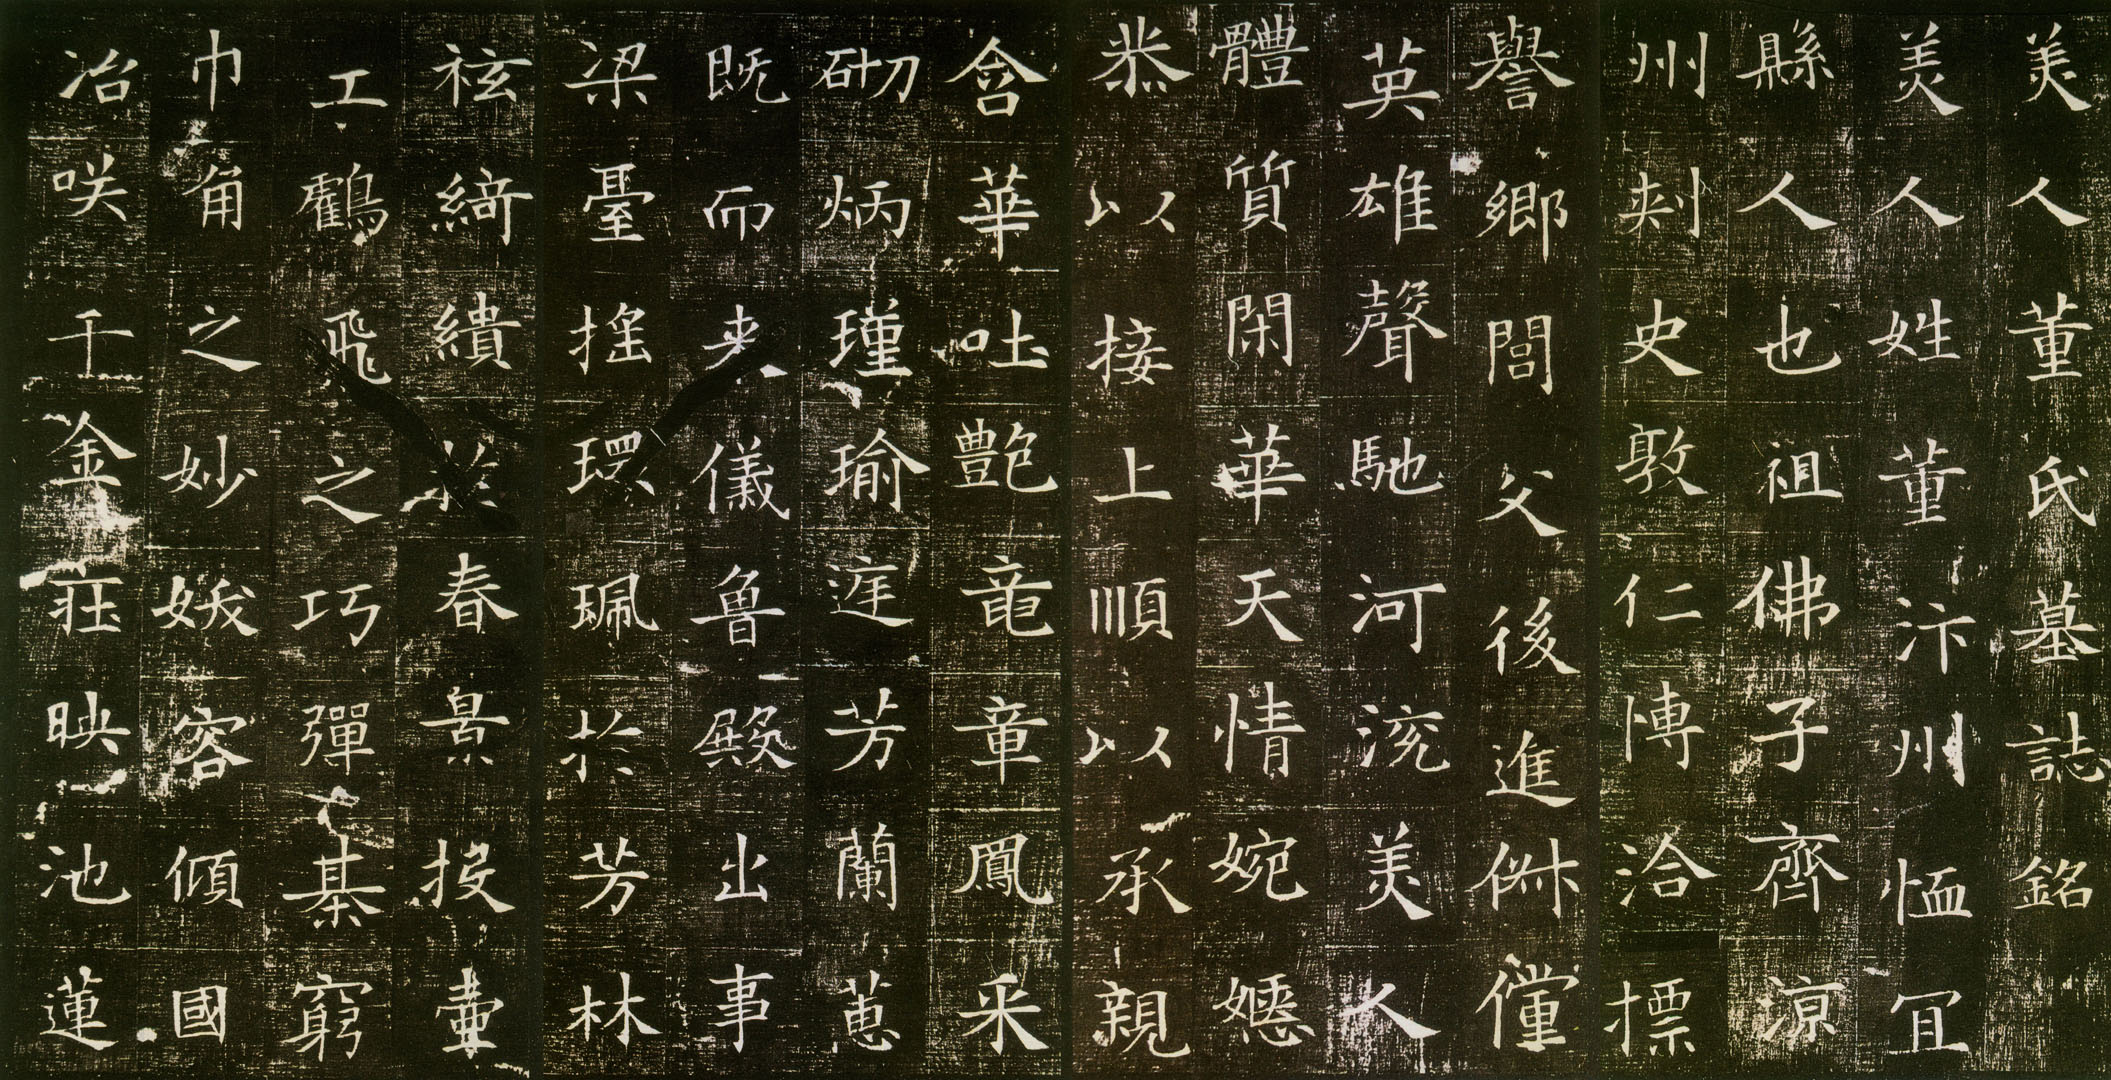 美人董氏墓誌銘
美人姓董汴州恤冝
縣人也祖佛子齊涼
州刾史敦仁博洽摽
譽鄉閭父後進俶儻
英雄聲馳河兗美人
體質閑華天情婉嫕
恭以接上順以承親
含華吐艷竜章鳳采
砌炳瑾瑜庭芳蘭蕙
既而来儀魯殿出事
梁臺搖環珮於芳林
袨綺繢於春景投壷
工鶴飛之巧彈棊窮
巾角之妙妖容傾國
冶咲千金荘映池蓮